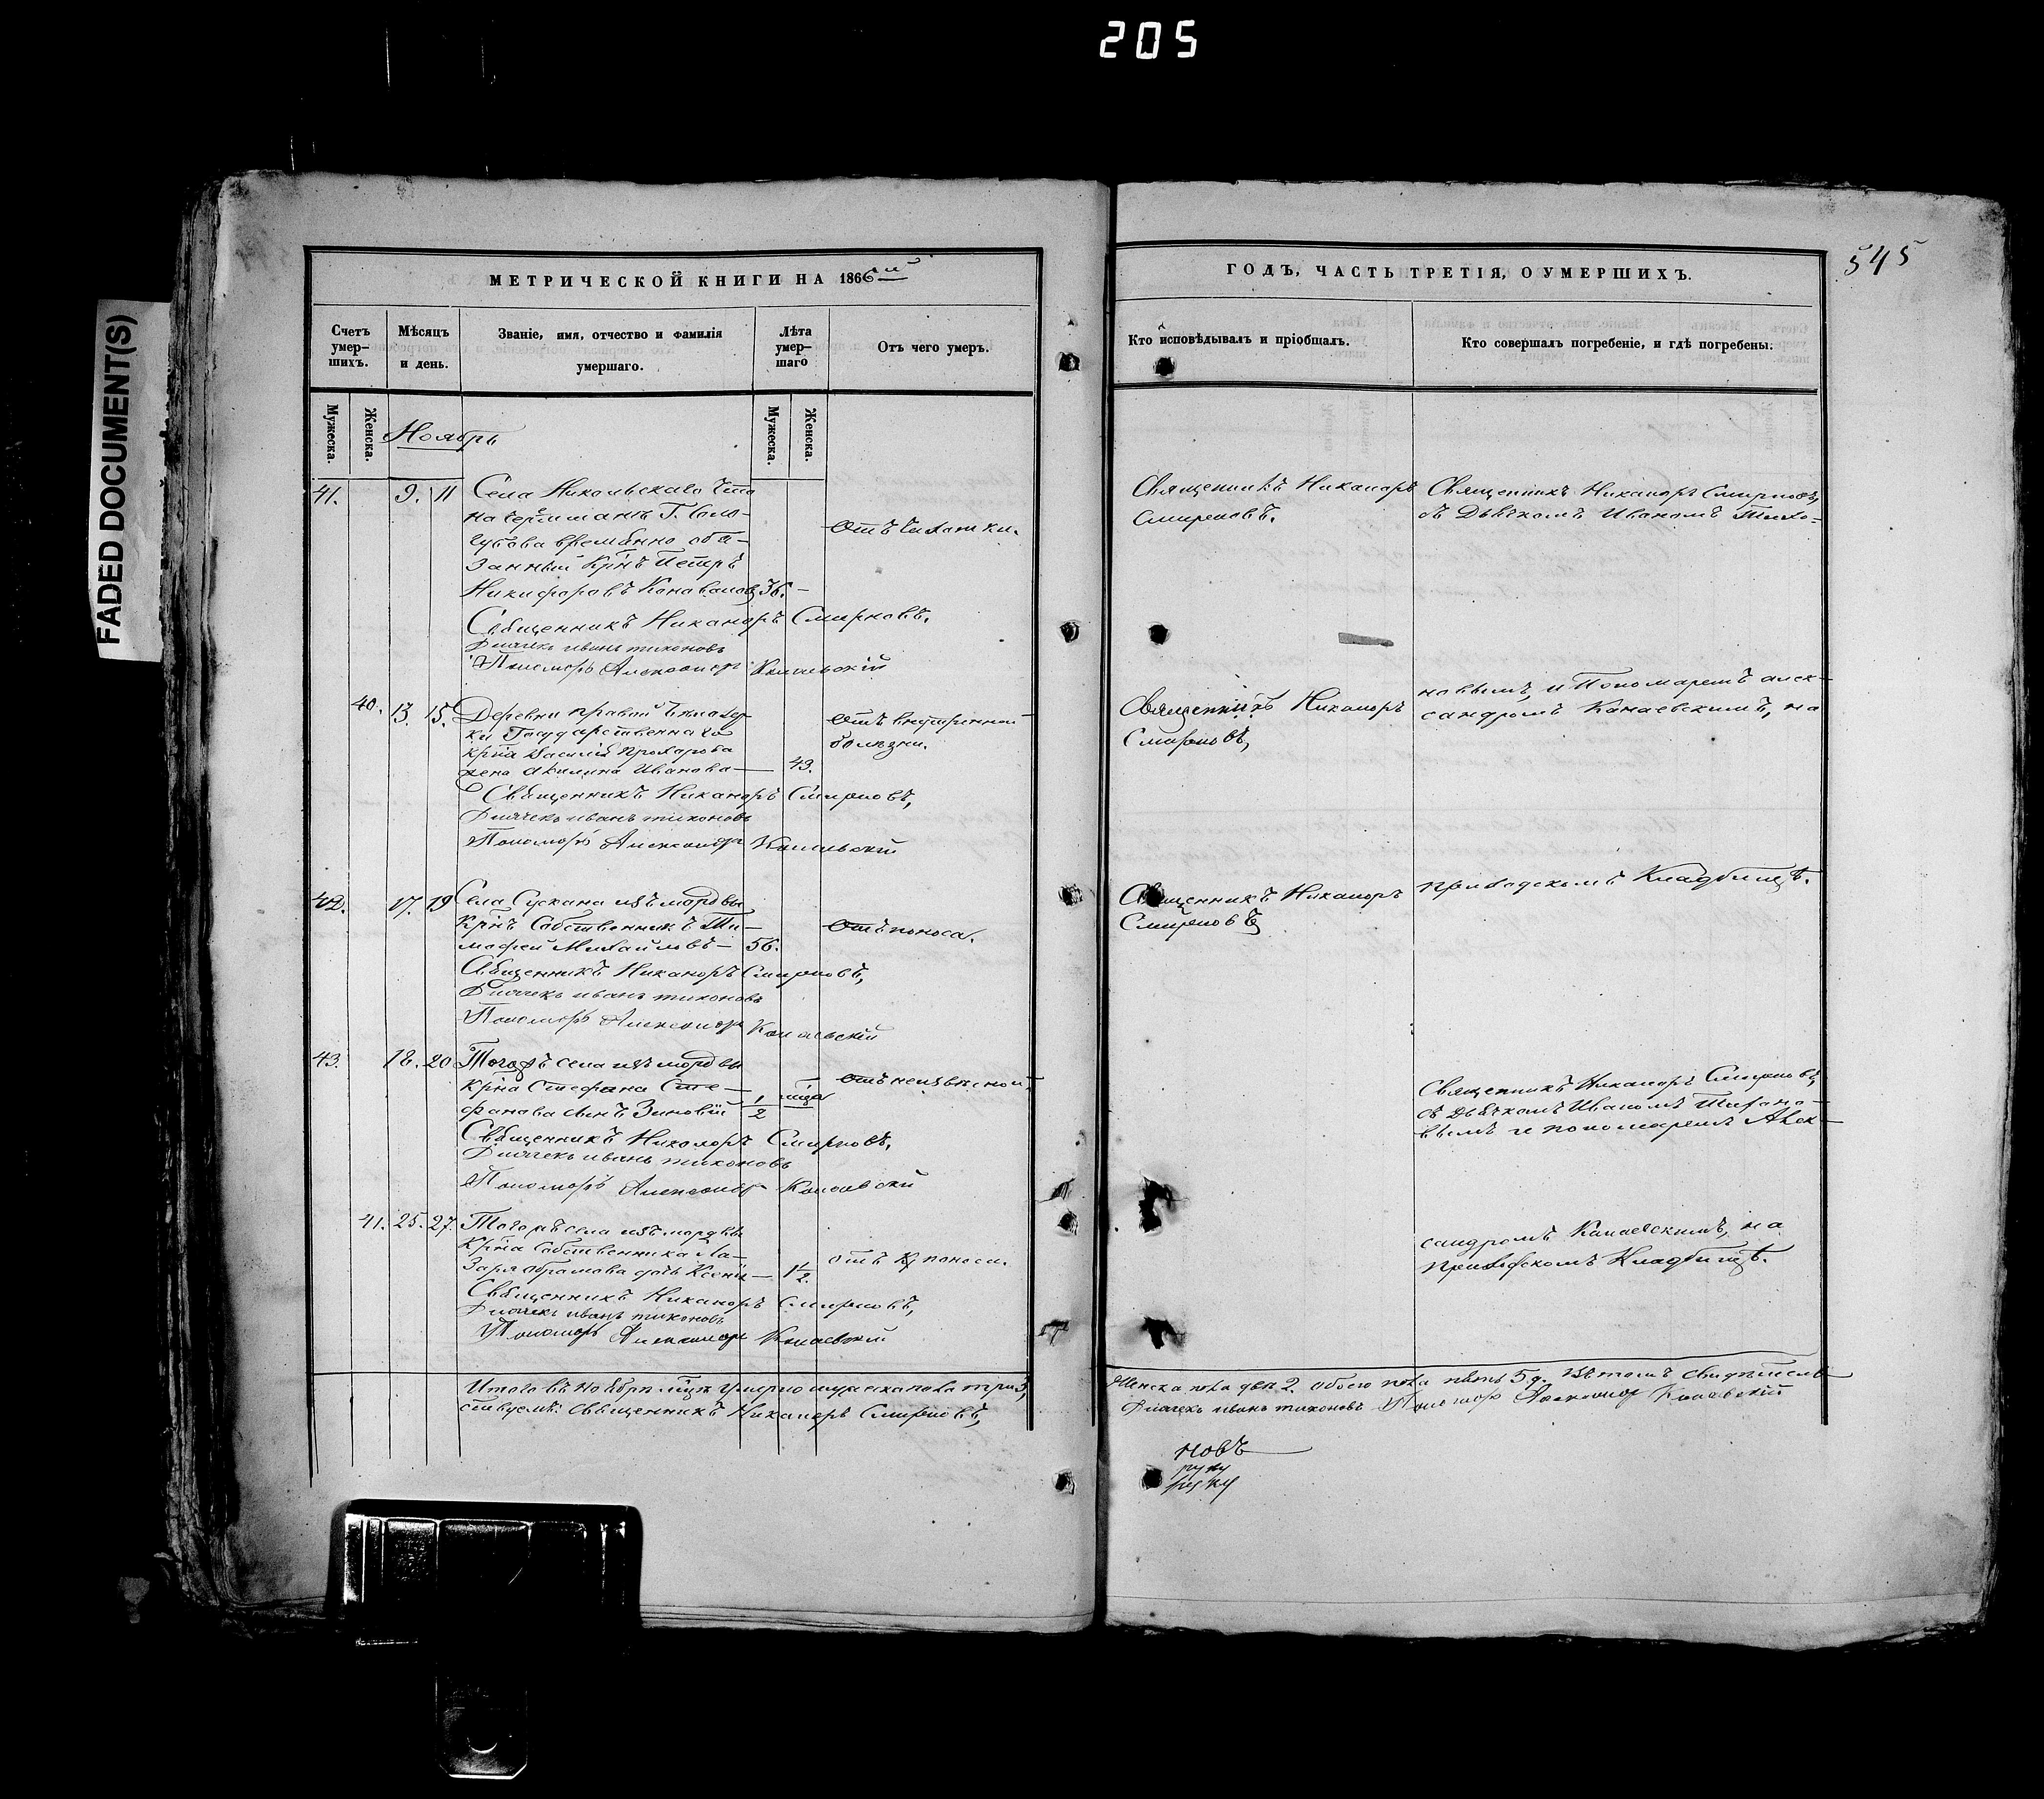 205
FADED DOCUMENT(S)
МЕТРИЧЕСКОЙ КНИГИ НА 1866й
ГОДЪ, ЧАСТЬ ТРЕТІЯ, О УМЕРШИХЪ.
545
Счетъ умер-шихъ.
Мѣсяцъ и день.
Званіе, имя, отчество и фамилія умершаго.
Лѣта умер-шаго
Отъ чего умеръ.
Кто исповѣдывалъ и пріобщалъ.
Кто совершалъ погребеніе, и гдѣ погребены.
Мужеска.
Женска.
Ноябрь
Мужеска.
Женска.
41. 9. 11 Села Никольскаго что
на Черемшанѣ Г.
временно обя-
занный Крнъ Петръ
Никифоровъ Коноваловъ 36.
Отъ чихотки.
Священникъ Никаноръ Смирновъ.
Дьячекъ иванъ тихоновъ
Пономарь Александръ Канаевскій
Священникъ Никаноръ
Смирновъ.
Священникъ Никаноръ Смирновъ,
съ Дьячкомъ Иваномъ Тихо-
40. 13. 15. Деревни правой
Государственнаго
крна Василія Прохорова
жена Акилина Иванова 43.
Отъ внутренной
болѣзни.
Священникъ Никаноръ Смирновъ,
Дьячекъ иванъ тихоновъ
Пономарь Александръ Канаевскій
Священникъ Никаноръ
Смирновъ,
новымъ, и Пономаремъ алек-
сандромъ Канаевскимъ, на
42. 17. 19 Села Сускана изъ мордвы
Крнъ Собственникъ Ти-
мофей Михайловъ 56.
Отъ поноса.
Священникъ Никаноръ Смирновъ,
Дьячекъ иванъ тихоновъ
Пономарь Александръ Канаевскій
Священникъ Никаноръ
Смирновъ
приходскомъ Кладбищѣ.
43. 18. 20 Тогожъ села изъ мордвы
крна Стефана Сте-
фанова сынъ Зиновій 1/2
Священникъ Никаноръ Смирновъ.
Дьячекъ иванъ тихоновъ
Пономарь Александръ Канаевскій
Священникъ Никаноръ Смирновъ,
съ Дьячкомъ Иваномъ Тихоно-
вымъ и пономаремъ Алек-
41. 25. 27. Тогожъ села изъ мордвы
Крна Собственника Ла-
заря Абрамова дочь Ксенія 1/2.
отъ поноса.
Священникъ Никаноръ Смирновъ,
Дьячекъ иванъ тихоновъ
Пономарь Александръ Канаевскій
сандромъ Канаевскимъ, на
приходскомъ Кладбищѣ.
Итого въ ноябрѣ мцѣ умерло мужеска пола три 3,
Женска пола двѣ 2. обоего пола пять 5 д. Въ томъ свидѣтель-
ствуемъ: Священникъ Никаноръ Смирновъ,
Дьячекъ иванъ тихоновъ Пономарь Александръ Канаевскій
новъ
руку
руку